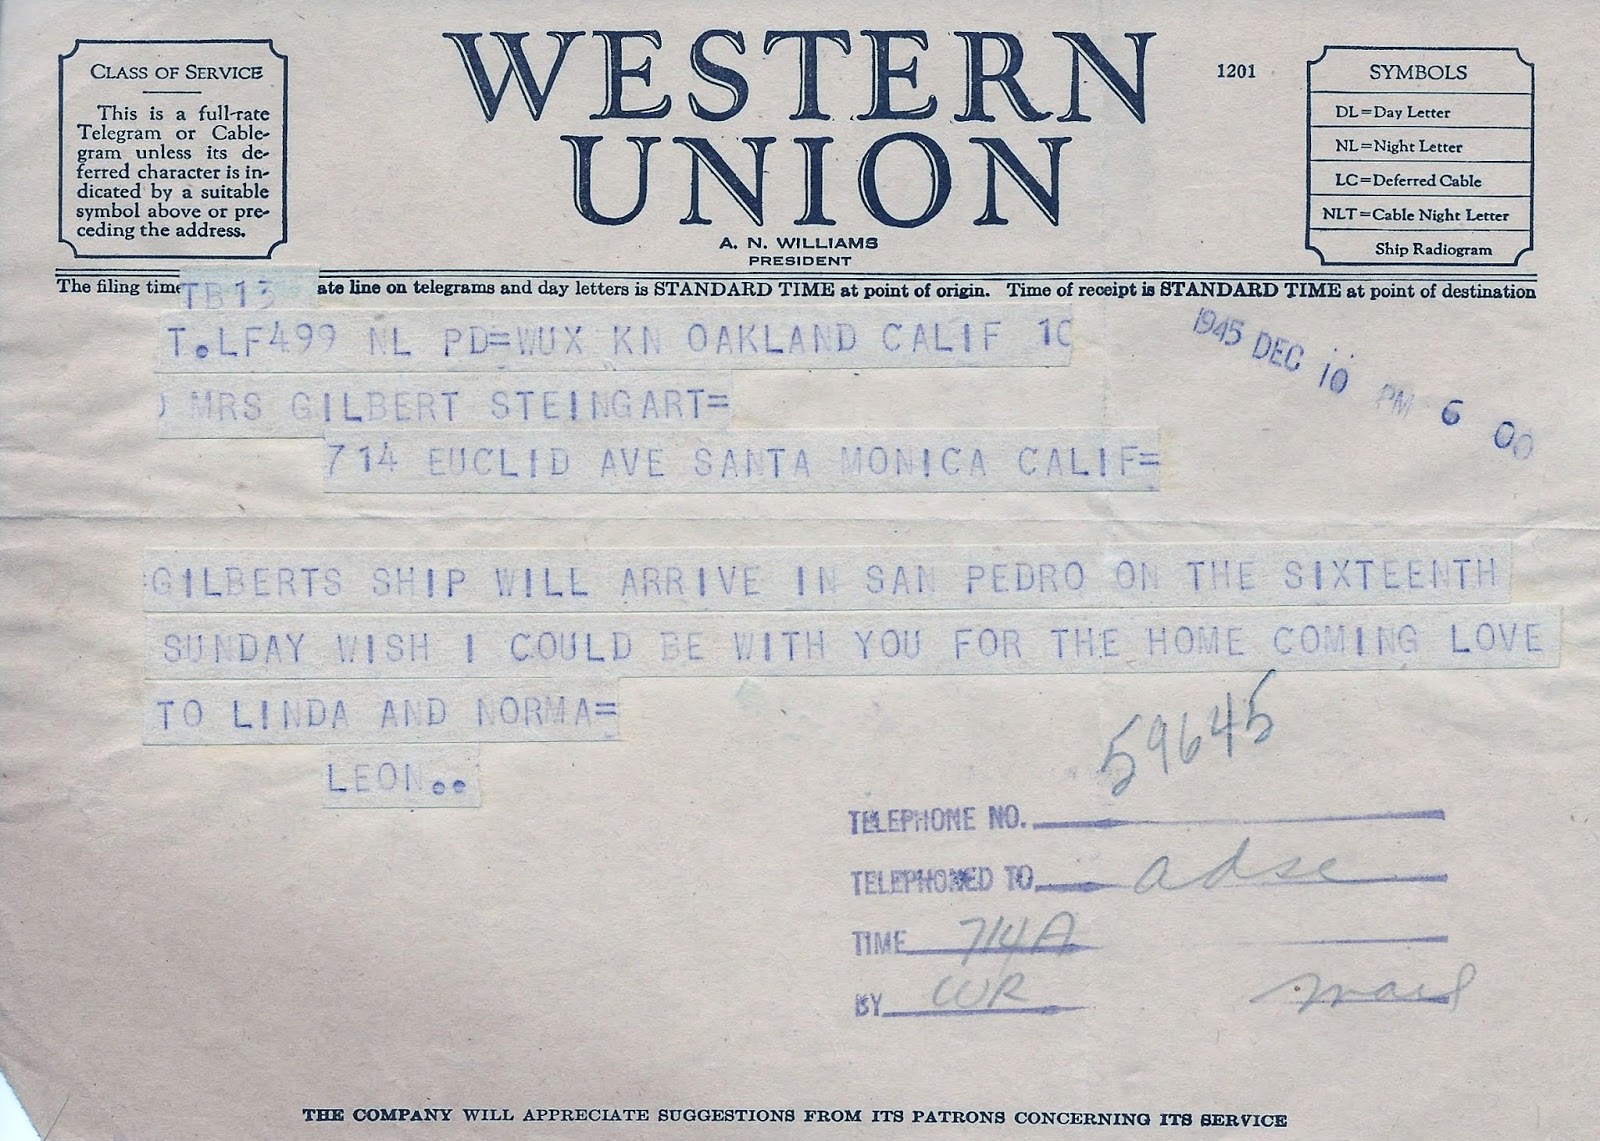 CLASS OF SERVICE
This is a full-rate
Telegram or Cable-
gram unless its de-
ferred character is in-
dicated by a suitable
symbol above or pre-
ceding the address.
WESTERN
UNION
A. N. WILLIAMS
PRESIDENT
1201
SYMBOLS
DL=Day Letter
NL=Night Letter
LC=Deferred Cable
NLT=Cable Night Letter
Ship Radiogram
The filing time TB13 ate line on telegrams and day letters is STANDARD TIME at point of origin. Time of receipt is STANDARD TIME at point of destination
T.LF499 NL PD=WUX KN OAKLAND CALIF 10
1945 DEC 10 PM 6 00
MRS GILBERT STEINGART=
714 EUCLID AVE SANTA MONICA CALIF=
:GILBERTS SHIP WILL ARRIVE IN SAN PEDRO ON THE SIXTEENTH
SUNDAY WISH I COULD BE WITH YOU FOR THE HOME COMING LOVE
TO LINDA AND NORMA=
LEON..
59645
TELEPHONE NO.
TELEPHONED TO adse
TIME 714A
BY WR mail
THE COMPANY WILL APPRECIATE SUGGESTIONS FROM ITS PATRONS CONCERNING ITS SERVICE